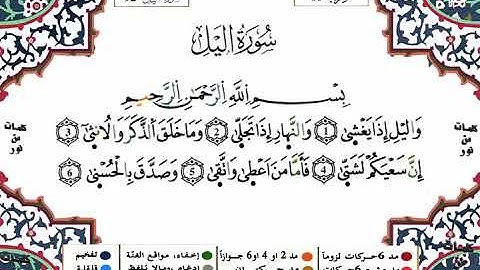 سُورَةُ الَّيْلِ
بِسْمِ اللَّهِ الرَّحْمَٰنِ الرَّحِيمِ
وَالَّيْلِ إِذَا يَغْشَىٰ ١ وَالنَّهَارِ إِذَا تَجَلَّىٰ ٢ وَمَا خَلَقَ الذَّكَرَ وَالْأُنْثَىٰ ٣
إِنَّ سَعْيَكُمْ لَشَتَّىٰ ٤ فَأَمَّا مَنْ أَعْطَىٰ وَاتَّقَىٰ ٥ وَصَدَّقَ بِالْحُسْنَىٰ ٦
كلمات من نور
كلمات من نور
مد 6 حركات لزوماً مد 2 أو 4 أو 6 جوازاً إخفاء، ومواقع الغنة تفخيم
قلقلة